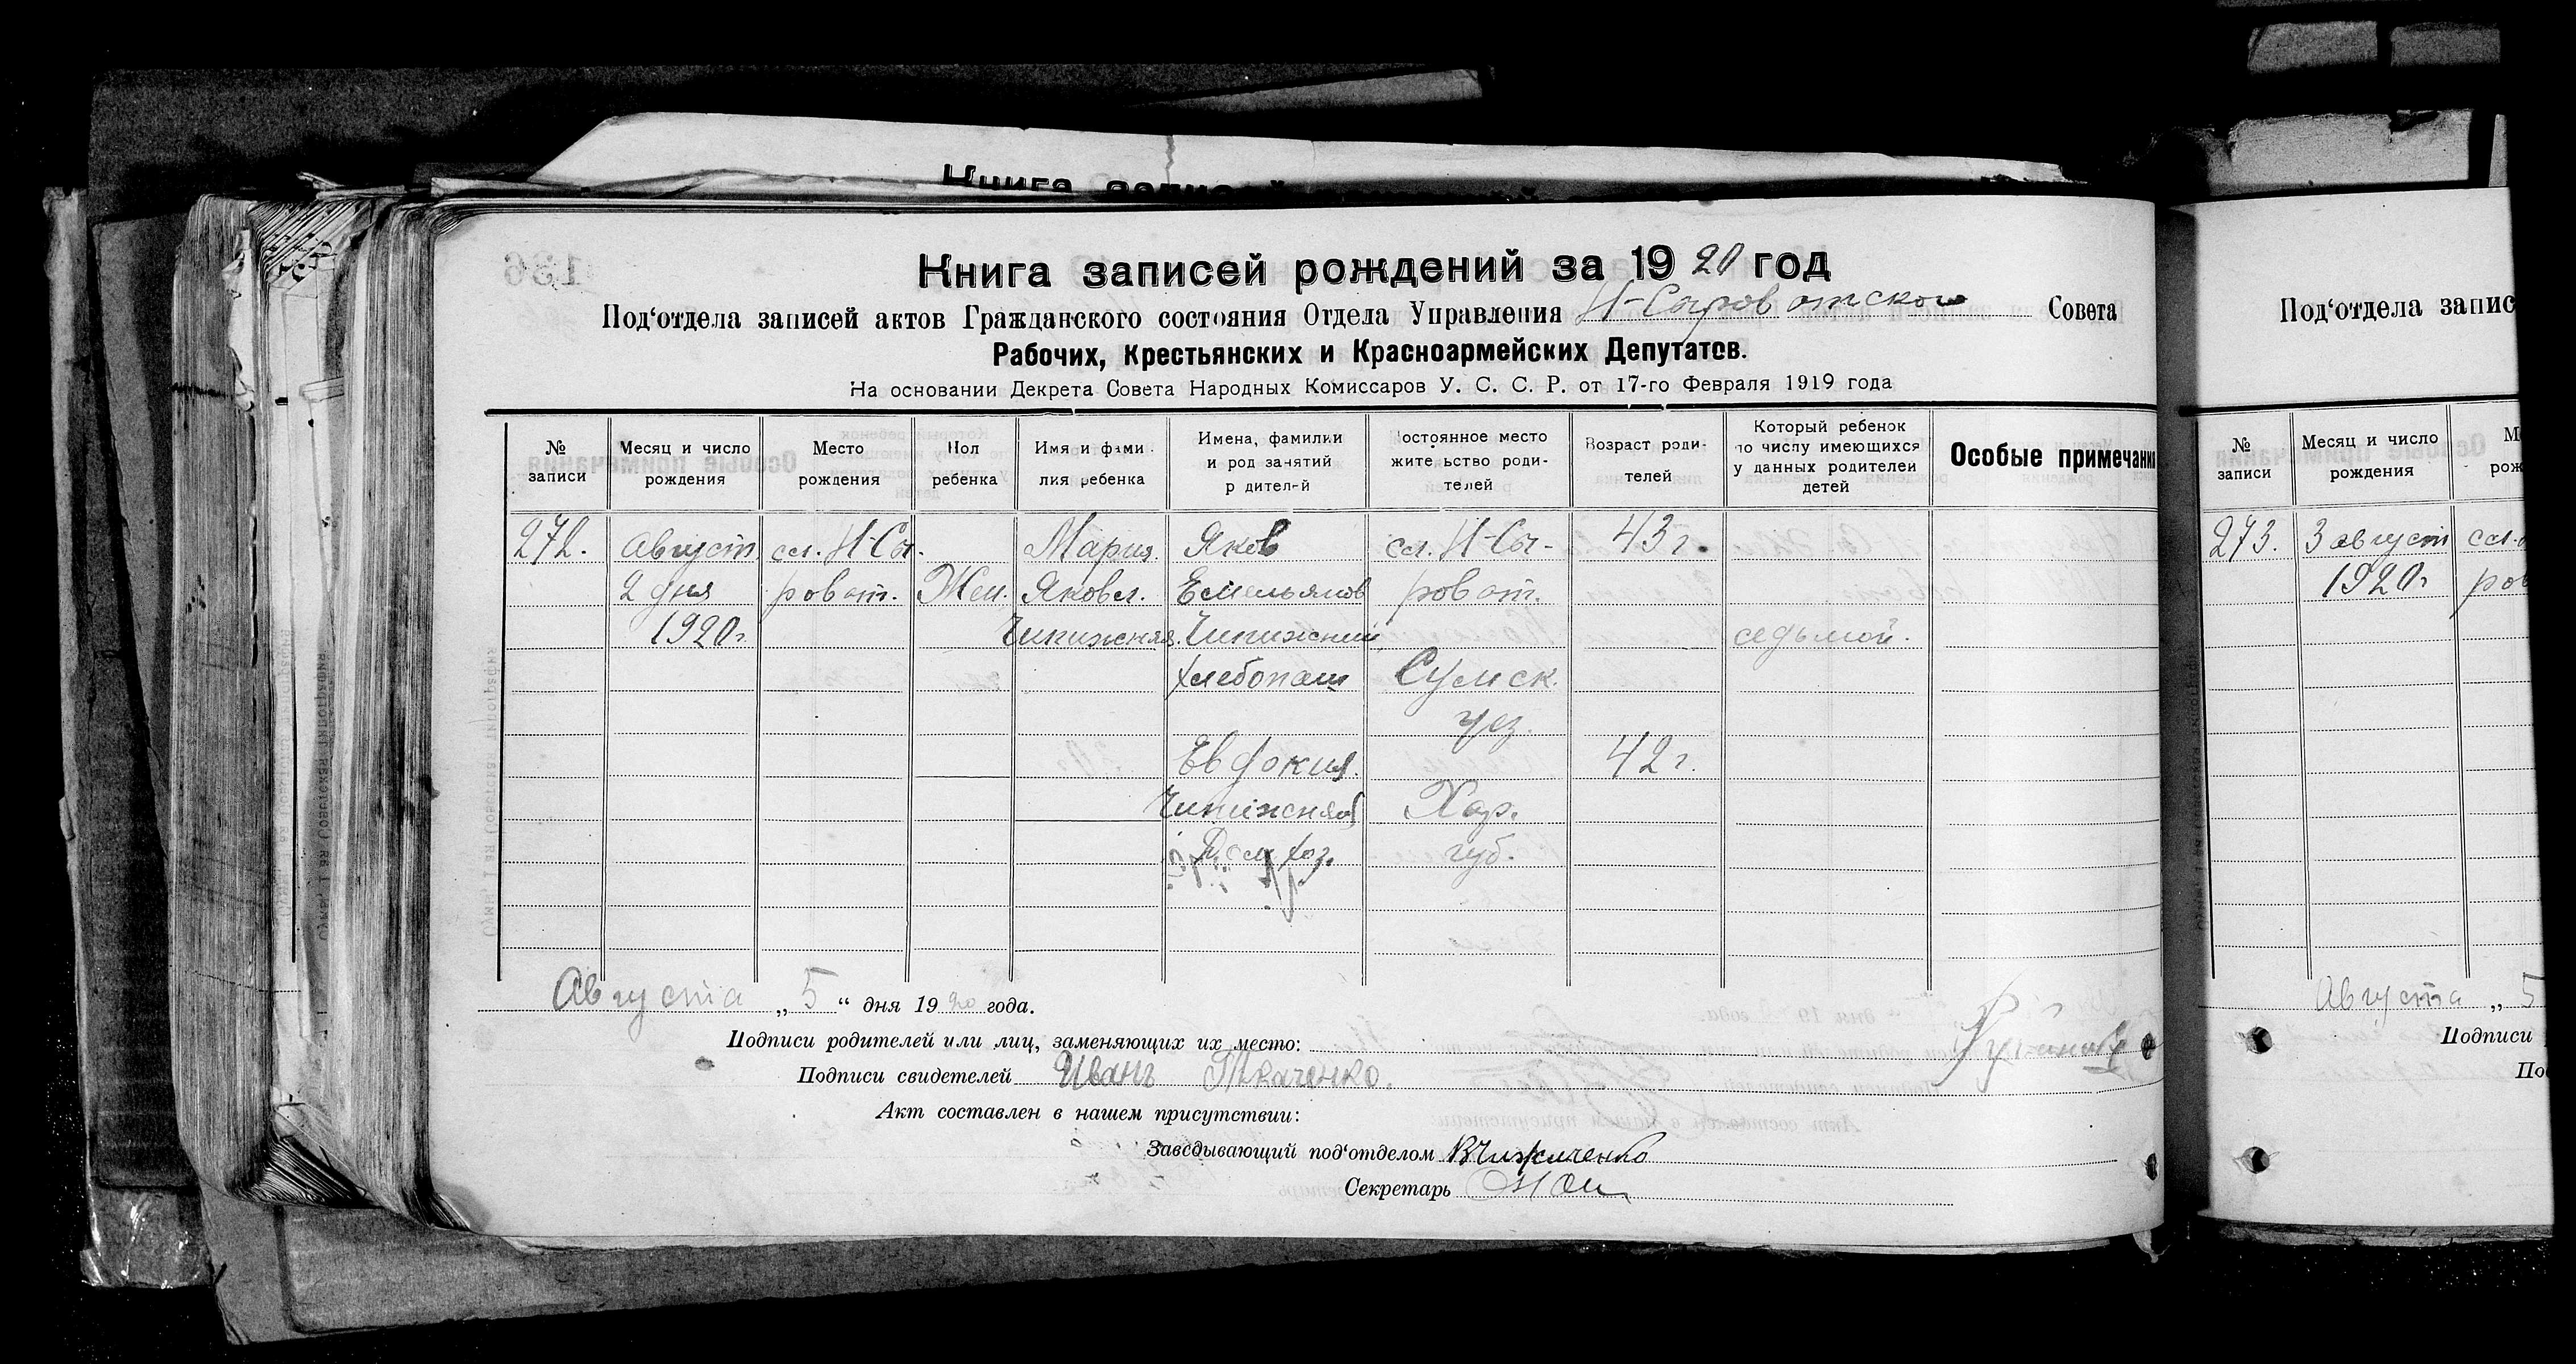 Книга записей
Книга записей рождений за 1920 год
Под‘отдела записей актов Гражданского состояния Отдела Управления Н-Сыроватского Совета
Рабочих, Крестьянских и Красноармейских Депутатов.
На основании Декрета Совета Народных Комиссаров У. С. С. Р. от 17-го Февраля 1919 года
№ записи
Месяц и число рождения
Место рождения
Пол ребенка
Имя и фамилия ребенка
Имена, фамилии и род занятий родителей
Постоянное место жительство родителей
Возраст родителей
Который ребенок по числу имеющихся у данных родителей детей
Особые примечани
272. Август. сл. Н-Сы. Мария. Яков сл. Н-Сы- 43 г.
2 дня роват. Жен. Яковл. Емельянов роват.
1920г. Чипижная. Чипижний седьмой.
хлебопаш Сумск.
уез.
Евдокия. 42 г.
Чипижная Хар.
Дом. хоз. губ.
Августа „ 5 “ дня 1920 года.
Подписи родителей или лиц, заменяющих их место:
Подписи свидетелей Иванъ Ткаченко.
Акт составлен в нашем присутствии:
Заведывающий под‘отделом
Секретарь
Под‘отдела запис
№ записи
Месяц и число рождения
273. 3 август сл.
1920г. ров
Августа „ 5
Подписи
По